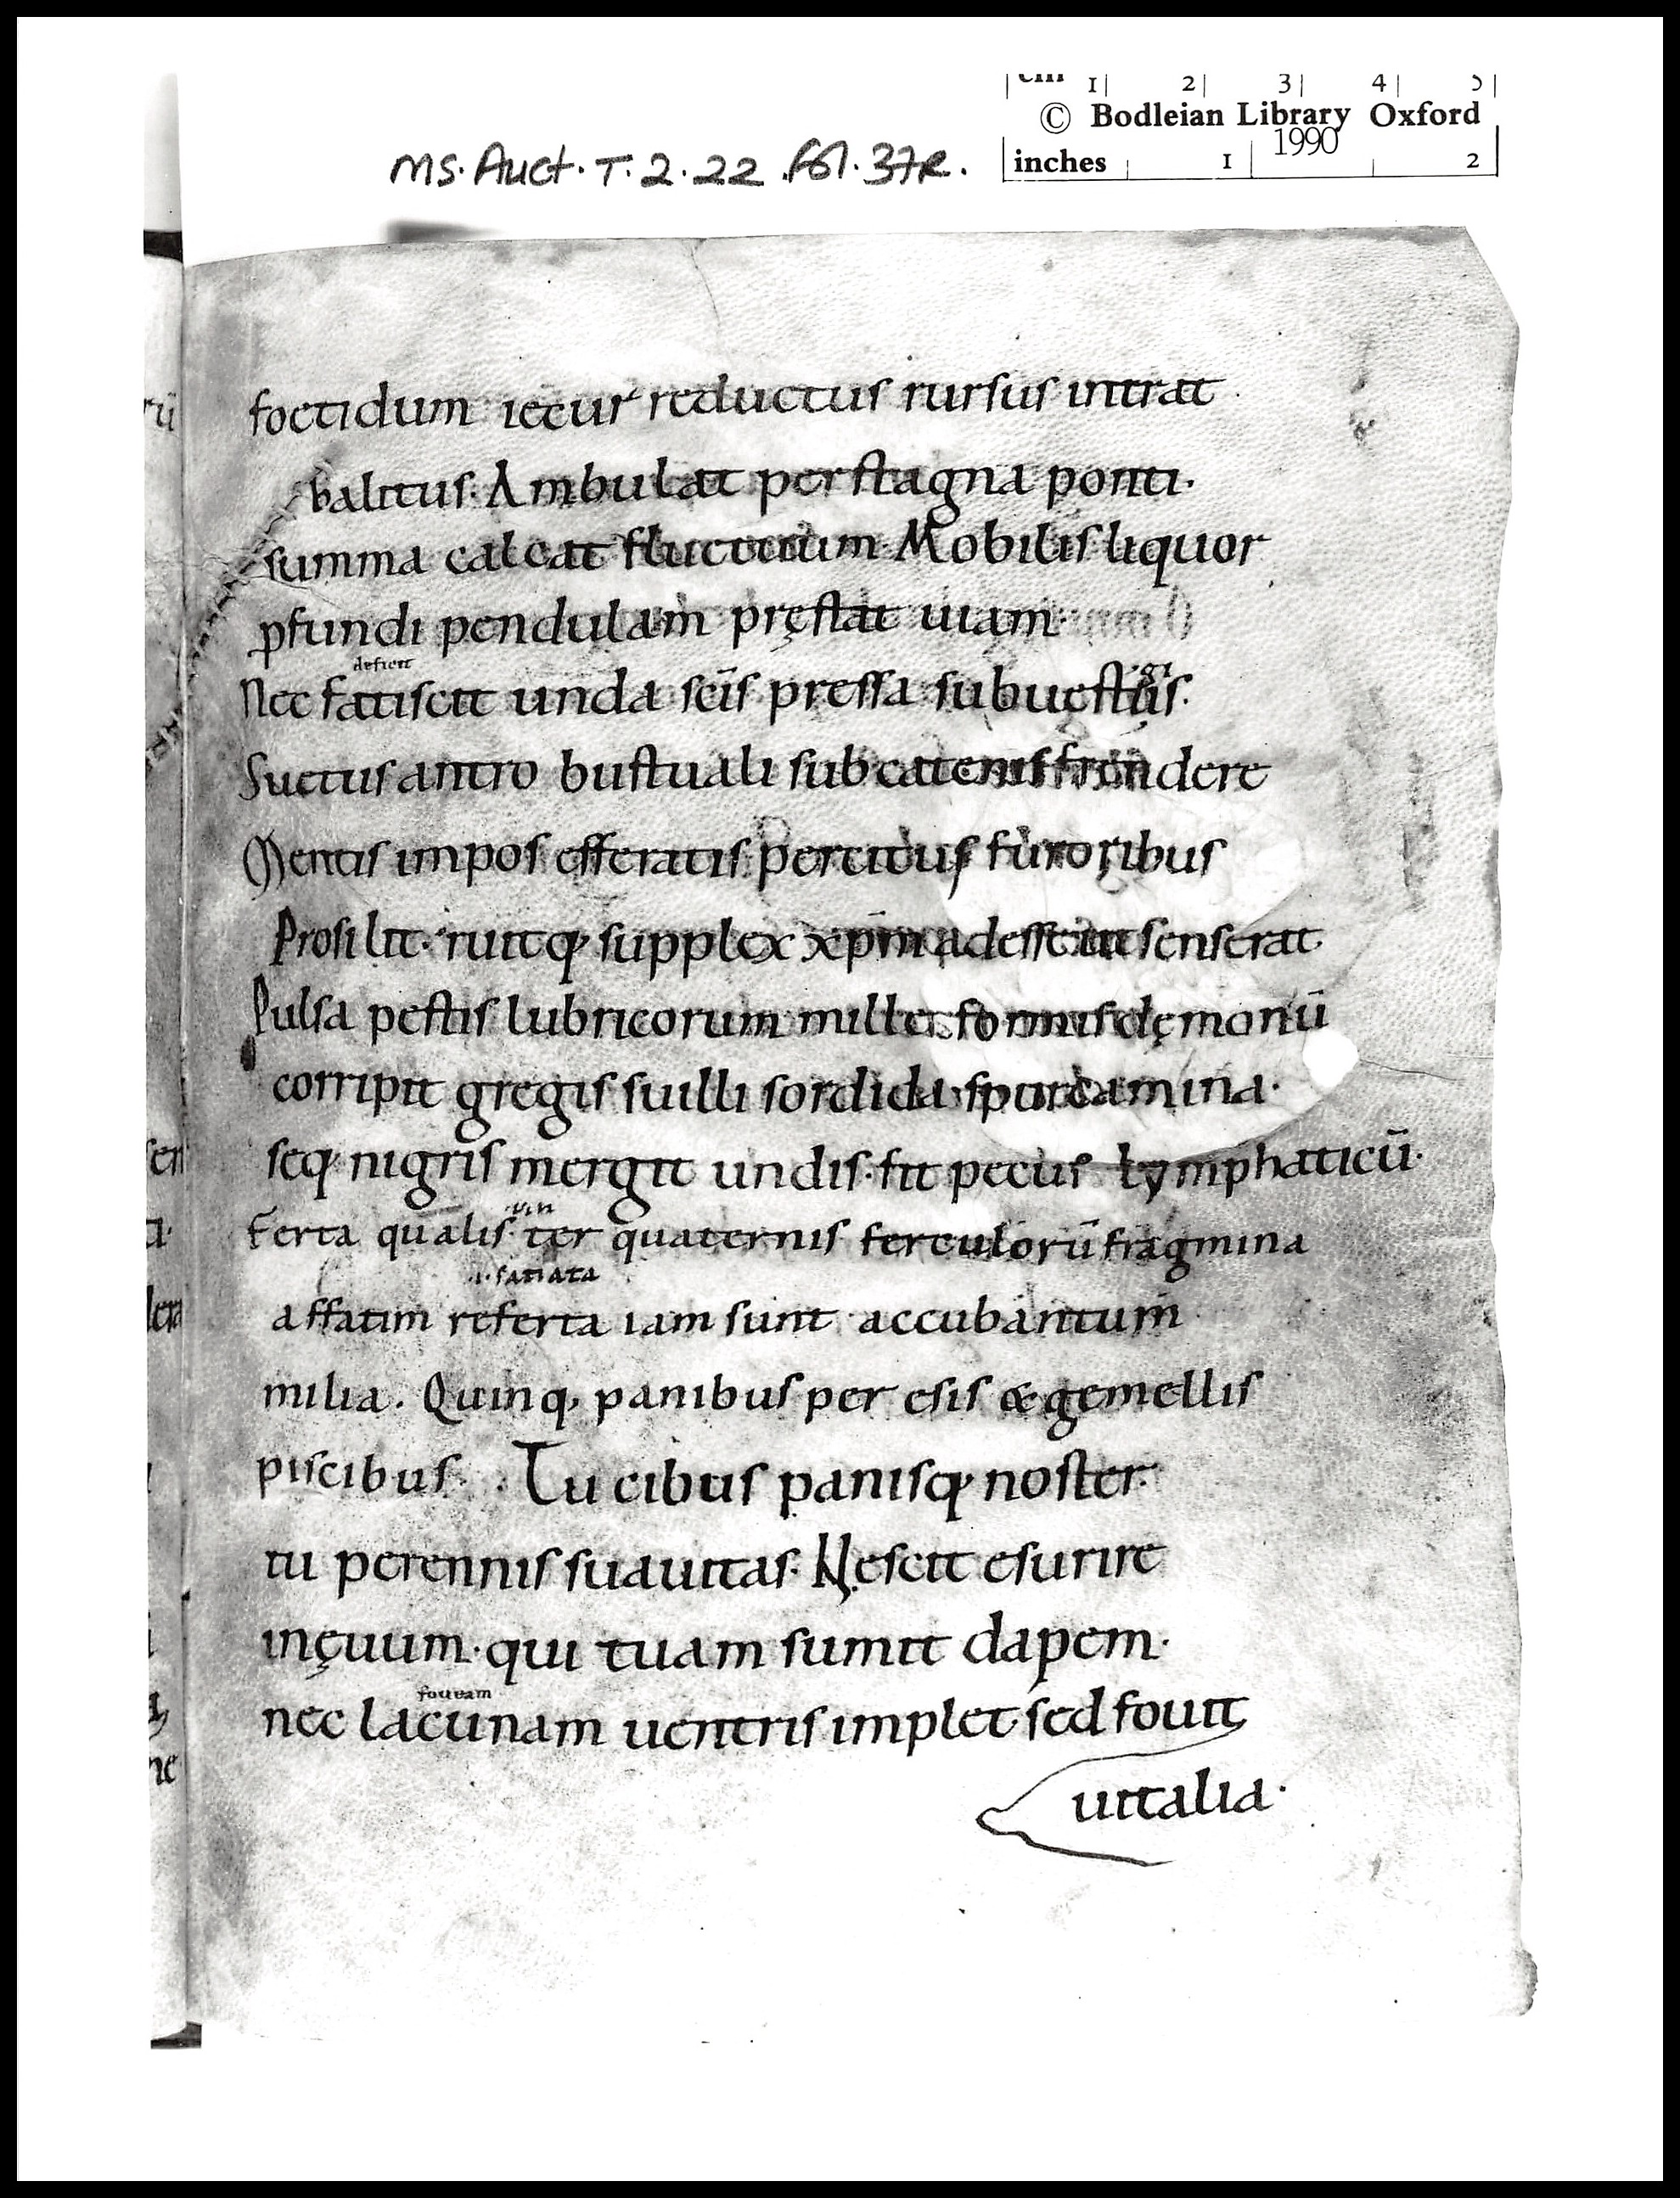 cm 1 2 3 4 5
© Bodleian Library Oxford
1990
inches 1 2
MS. Auct. T. 2. 22 fol. 37R.
foetidum iecur reductus rursus intrat
halitus. Ambulat per stagna ponti.
summa calcat fluctuum Mobilis liquor
ꝓfundi pendulam pręstat uiam
deficit
Nec fatiscit unda sc̄is pressa subuestigiis.
Suetus antro bustuali sub catenis frendere
Mentis impos efferatis percitus furoribus
Prosilit. ruitq; supplex xp̄m adesse ut senserat
Pulsa pestis lubricorum mille formis dęmonū
corripit gregis suilli sordida spurcamina.
seq; nigris mergit undis. fit pecus lymphaticū.
Ferta qualis ter quaternis ferculorū fragmina
.i. satiata
affatim referta iam sunt accubantum
milia. Quinq; panibus per esis & gemellis
piscibus. Tu cibus panisq; noster.
tu perennis suauitas. Nescit esurire
inęuum. qui tuam sumit dapem.
foueam
nec lacunam uentris implet sed fouit
uitalia.